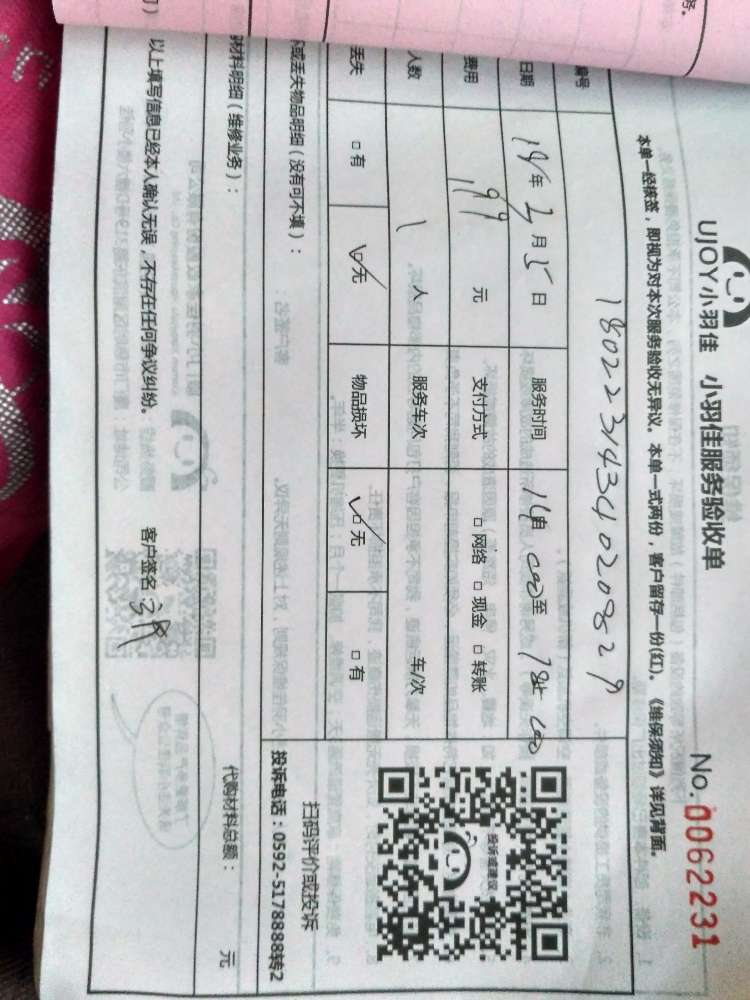 UJOY小羽佳 小羽佳服务验收单 No.0062231
本单一经核签，即视为对本次服务验收无异议。本单一式两份，客户留存一份(红)。《维保须知》详见背面。
编号
日期 19年2月5日 服务时间 14 : 00至 18 : 00
费用 199 元 支付方式 □网络 □现金 □转账
人数 1 人 服务车次 车/次
丢失 □有 □无 物品损坏 □无 □有
坏或丢失物品明细(没有可不填)：
材料明细(维修业务)：
投诉或建议
扫码评价或投诉
投诉电话：0592-5178888转2
代购材料总额： 元
以上填写信息已经本人确认无误，不存在任何争议纠纷。 客户签名：